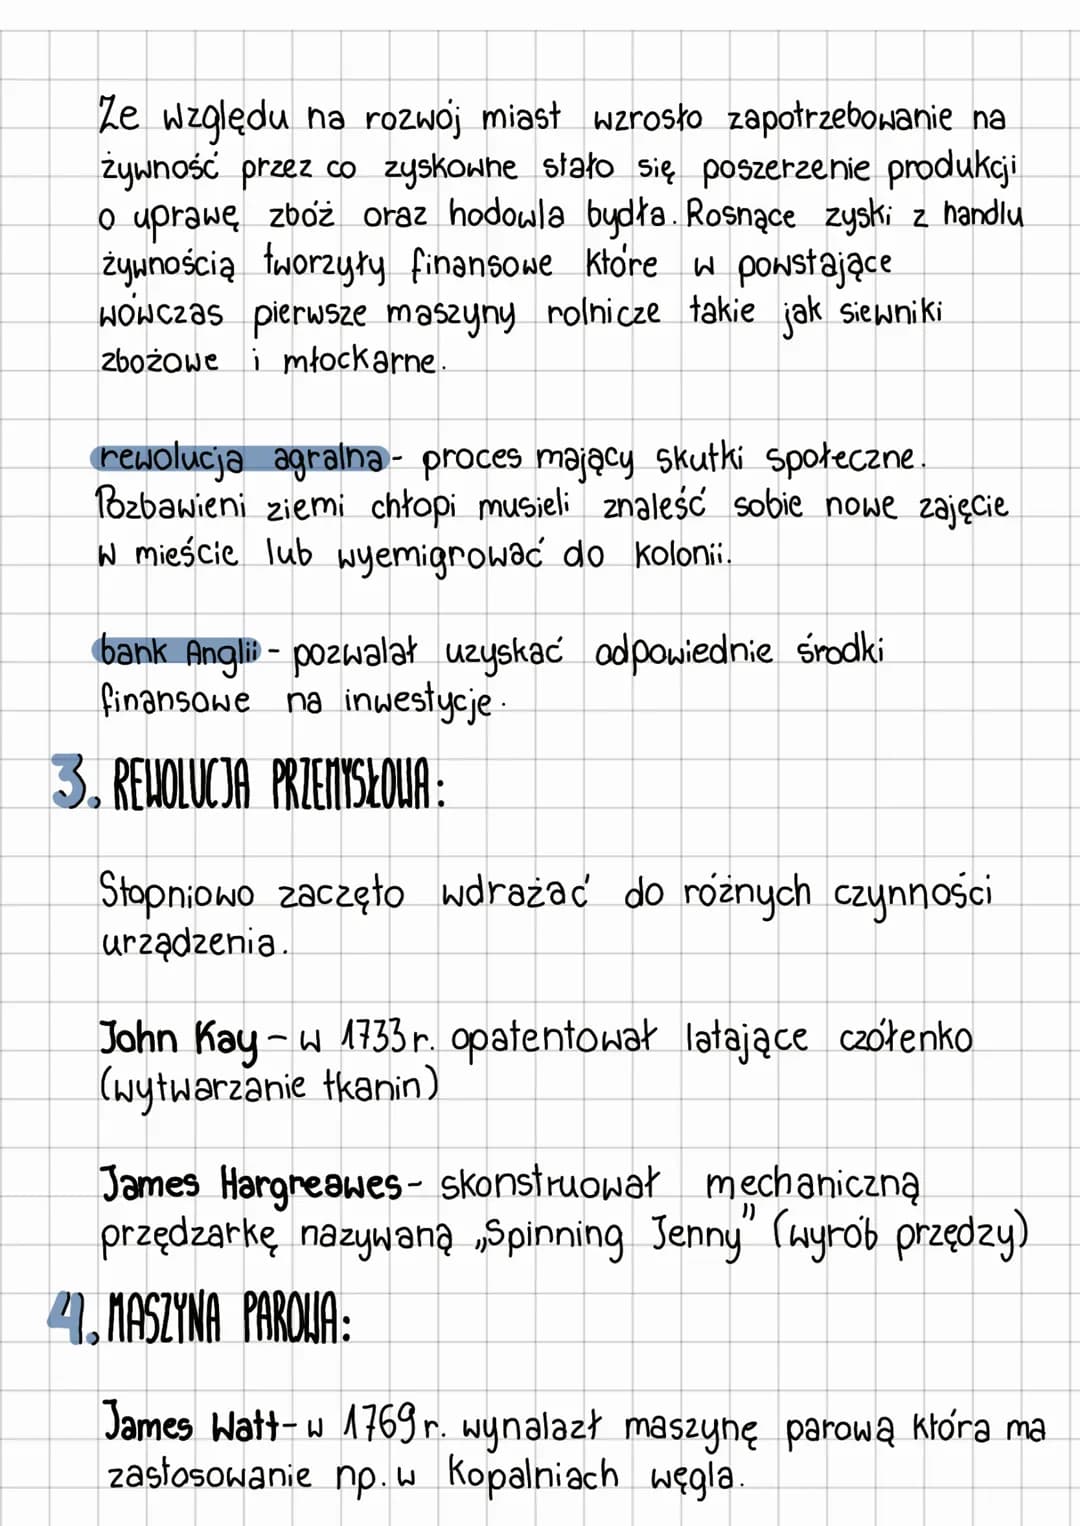 Ze względu na rozwój miast wzrosło zapotrzebowanie na
żywność przez co zyskowne stało się poszerzenie produkcji
o uprawę zbóż oraz hodowla bydła. Rosnące zyski z handlu
żywnością tworzyły finansowe które w powstające
wówczas pierwsze maszyny rolnicze takie jak siewniki
zbożowe i młockarne.
rewolucja agralna - proces mający skutki społeczne.
Pozbawieni ziemi chłopi musieli znaleść sobie nowe zajęcie
w mieście lub wyemigrować do kolonii.
bank Anglii - pozwalał uzyskać odpowiednie środki
finansowe na inwestycje.
3. REWOLUCJA PRZEMYSŁOWA:
Stopniowo zaczęto wdrażać do różnych czynności
urządzenia.
John Kay - w 1733 r. opatentował latające czółenko
(wytwarzanie tkanin)
James Hargreawes - skonstruował mechaniczną
przędzarkę nazywaną „Spinning Jenny" (wyrób przędzy)
4. MASZYNA PAROWA:
James Watt - w 1769 r. wynalazł maszynę parową która ma
zastosowanie np. w kopalniach węgla.